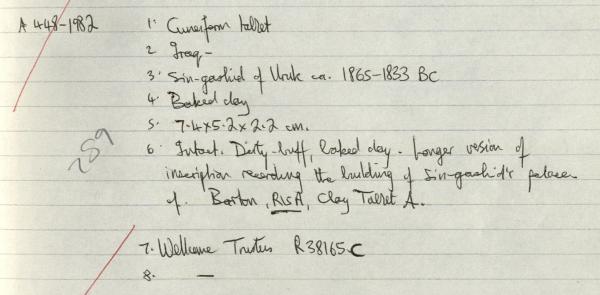 A 448-1982 1. Cuneiform tablet
2 Iraq -
3. Sin-gashid of Uruk ca. 1865-1833 BC
4. Baked clay
5. 7.4 x 5.2 x 2.2 cm.
259
6. Intact. Dirty-buff, baked clay. Longer version of
inscription recording the building of Sin-gashid's palace
cf. Barton, RISA, Clay Tablet A.
7. Wellcome Trustees R38165.C
8. —